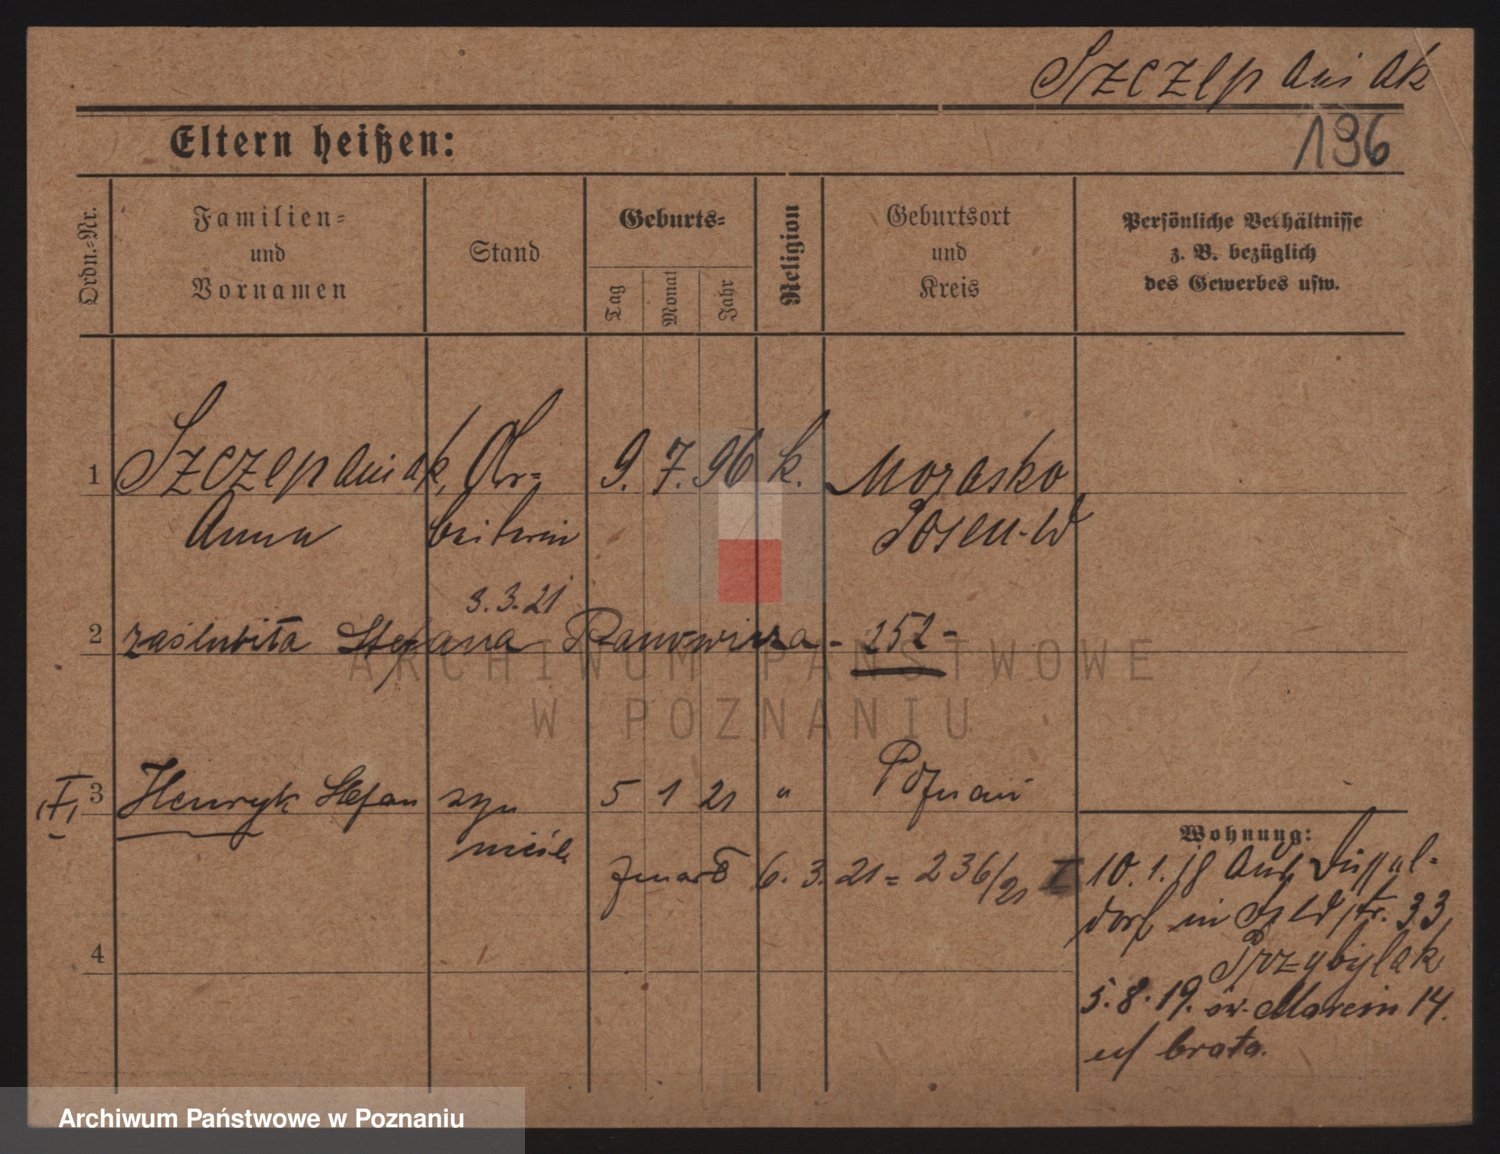 Szczepaniak
196
Eltern heißen:
Ordn.=Nr.
Familien=
und
Vornamen
Stand
Geburts=
Tag
Monat
Jahr
Religion
Geburtsort
und
Kreis
Persönliche Verhältnisse
z. B. bezüglich
des Gewerbes usw.
1 Szczepaniak, Ar= 9. 7. 96 k. Morasko
Anna beiterin Posen-W
3.3.21
2 zaślubiła Stefana - 252 -
3 Henryk Stefan syn 5 1 21 " Poznań
nieśl.
zmarł 6. 3. 21 = 236/21 I
4
Wohnung:
10. 1. 18 aus Düssel-
dorf in str. 33
Przybylak
5. 8. 19. św. Marcin 14.
u/ brata.
ARCHIWUM PAŃSTWOWE
W POZNANIU
Archiwum Państwowe w Poznaniu